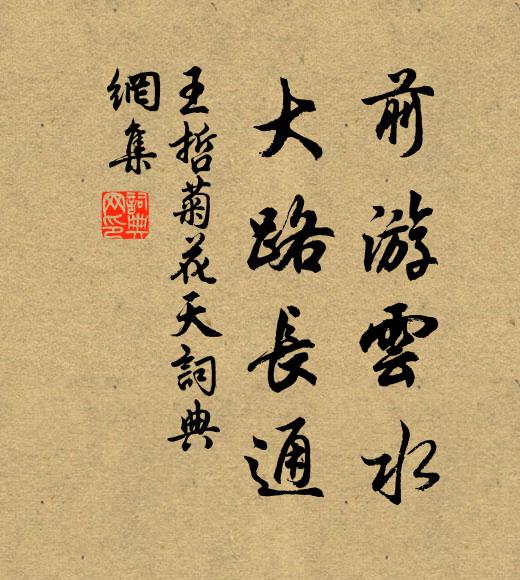 前游雲水
大路長通
王哲菊花天詞典
網集
詞典網印